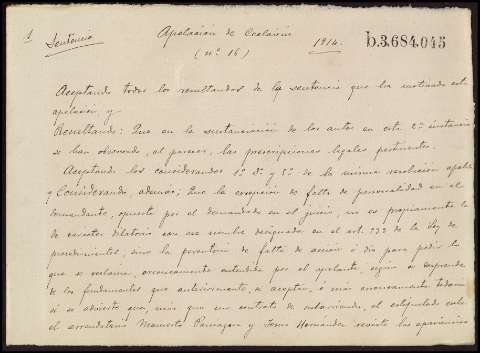 1 Sentencia
Apelación de Coclaivin
(nº 16)
1914.
b.3.684.045
Aceptando todos los resultandos de la sentencia que ha motivado esta
apelación, y
Resultando: Que en la sustanciación de los autos en esta 2ª instancia
se han observado, al parecer, las prescripciones legales pertinentes.
Aceptando los considerandos 1º 2º y 5º de la misma resolución apelada
y Considerando, además: Que la excepción de falta de personalidad en el
demandante, opuesta por el demandado en el juicio, no es propiamente la
de carácter dilatorio con ese nombre designada en el art. 533 de la Ley de
procedimientos, sino la perentoria de falta de acción ó dro para pedir lo
que se reclama, erróneamente entendida por el apelante, según se desprende
de los fundamentos que anteriormente se aceptan, ó más erróneamente todavía
si se advierte que, más que un contrato de subarriendo, el estipulado entre
el arrendatario Mamerto Paniagua y Jesús Hernández reviste las apariencias